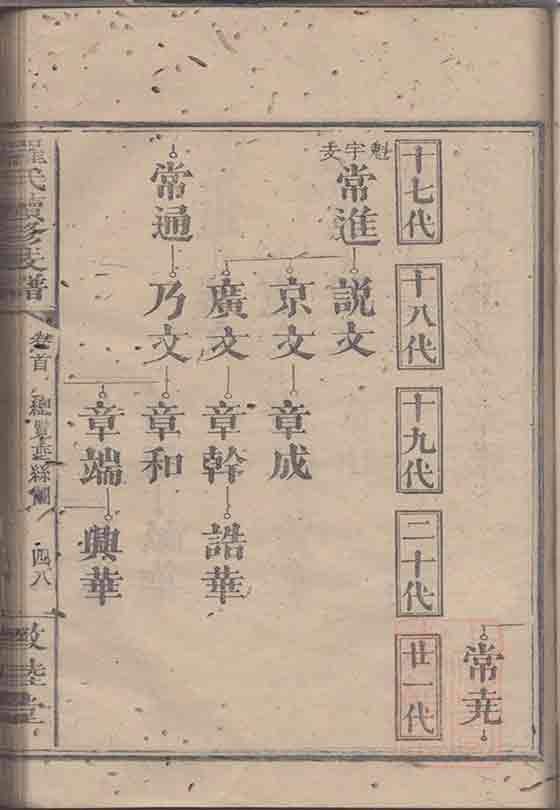 常尭
十七代
十八代
十九代
二十代
廿一代
魁宇支
常進
説文
京文
章成
廣文
章幹
誥華
常通
乃文
章和
章端
興華
羅氏續修支譜
卷首
總覽垂絲圖
四八
敦睦堂